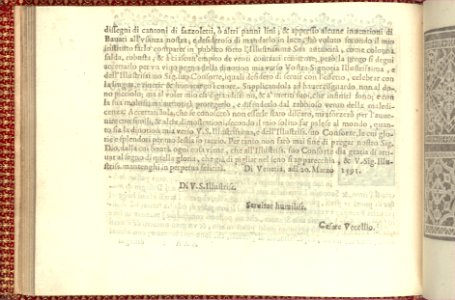 dissegni di cantoni di fazzoletti, & altri panni lini; & appresso alcune inuentioni di
Bauari all'vsanza nostra, e desideroso di mandarlo in luce, hò voluto secondo il mio
instituto farlo comparir in publico sotto l'Illustrissima Sua autorità, come colonna
salda, robusta, & à ciascun'empito de venti contrari resistente, però la prego si degni
accettarlo per viua pegno della diuotion mia verso Vostra Signoria Illustrissima, e
dell'Illustrissimo Sig. suo Consorte, iquali desidero di seruir con l'effetto, celebrar con
la lingua, e riuerir, & honorar co'l core. Supplicandola ad hauer sguardo, non al do-
no picciolo, ma al voler mio
con la sua molta autorità proteggerlo, e difendendolo dal rabbioso vento della maledi-
cenza. Accettandola, che se conoscerò non esserle stato discaro, mi sforzerò per l'aue-
nire con simili, & altre dimostrationi, secondo il mio solito far palese al mondo, quan-
to sia la diuotion mia verso V. S. Illustrissima, e dell'Illustriss. suo Consorte, le cui glo-
rie e splendori per modestia io taccio. Per tanto non farò mai fine di pregar nostro Sig.
Dio, dalla cui bontà ogni cosa viene, che all'Illustriss. suo Consorte dia gratia di arri-
uar al segno di quella gloria, che già di pigliar nel seno si apparecchia, & V. Sig. Illu-
striss. mantenghi in perpetua felicità. Di Venetia, adì 20. Marzo 1591.
Di V. S. Illustriss.
Seruitor humiliss.
Cesare Vecellio.